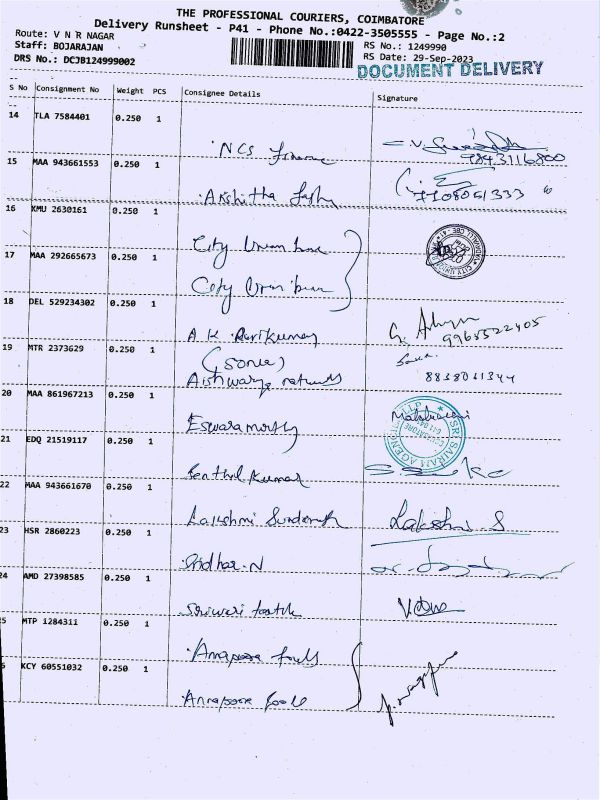 THE PROFESSIONAL COURIERS, COIMBATORE
Delivery Runsheet - P41 - Phone No.:0422-3505555 - Page No.:2
Route: V N R NAGAR
RS No.: 1249990
Staff: BOJARAJAN
RS Date: 29-Sep-2023
DRS No.: DCJB124999002
DOCUMENT DELIVERY
S No Consignment No Weight PCS Consignee Details Signature
14 TLA 7584401 0.250 1
NCS Finance
7843116800
15 MAA 943661553 0.250 1
Akshitha
7108061333
16 KMU 2630161 0.250 1
City Union bank
17 MAA 292665673 0.250 1
City Union bank
18 DEL 529234302 0.250 1
A K Ravikumar
9965522405
19 MTR 2373629 0.250 1
(Sonu)
Aishwarya
8838011344
20 MAA 861967213 0.250 1
Eswaramorthy
SRI SAIRAM AGEN
21 EDQ 21519117 0.250 1
Senthil Kumar
22 MAA 943661670 0.250 1
Lakshmi
Lakshmi. S
23 HSR 2860223 0.250 1
Sridhar. N
24 AMD 27398585 0.250 1
Sriwari
5 MTP 1284311 0.250 1
Annapoorna foods
6 KCY 60551032 0.250 1
Annapoorna foods